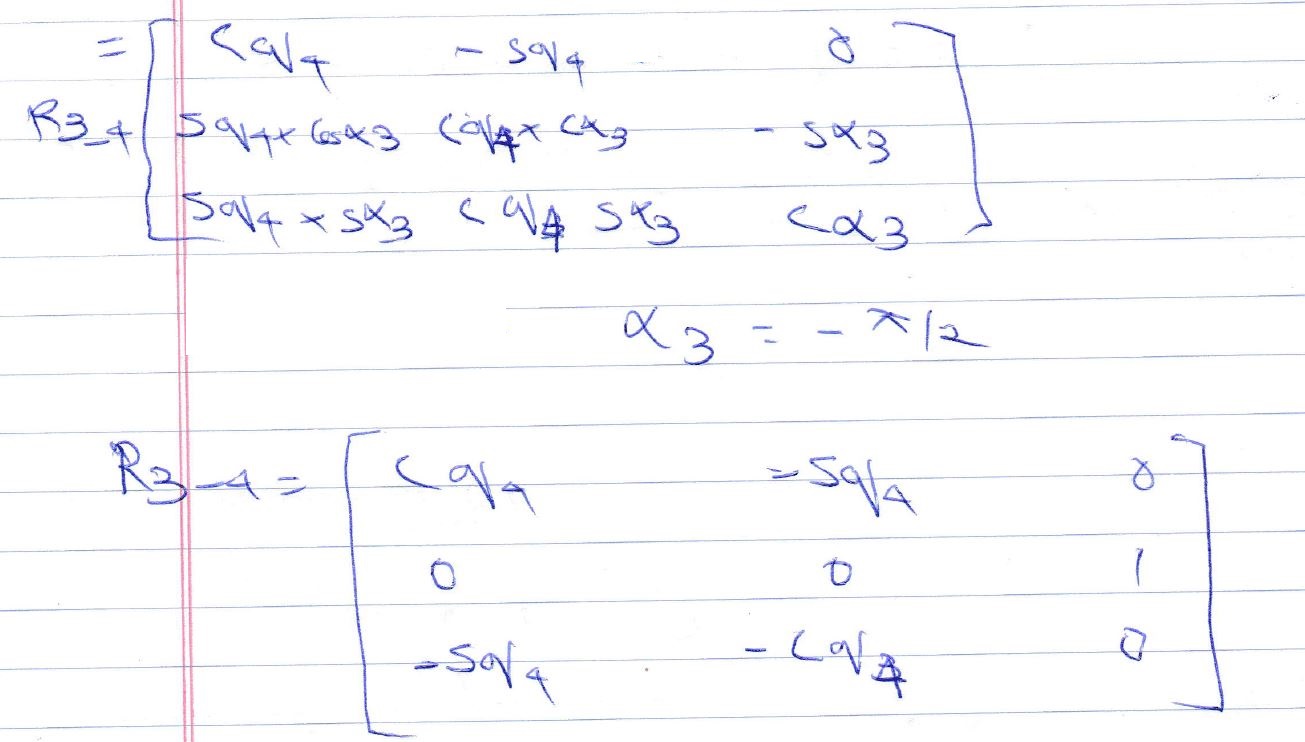 = [ Cq4 - sq4 0 ]
R3_4 Sq4 × Cosα3 Cq4 × Cα3 - sα3
Sq4 × sα3 Cq4 sα3 Cα3
α3 = - π/2
R3_4 = [ Cq4 -Sq4 0 ]
0 0 1
-Sq4 - Cq4 0